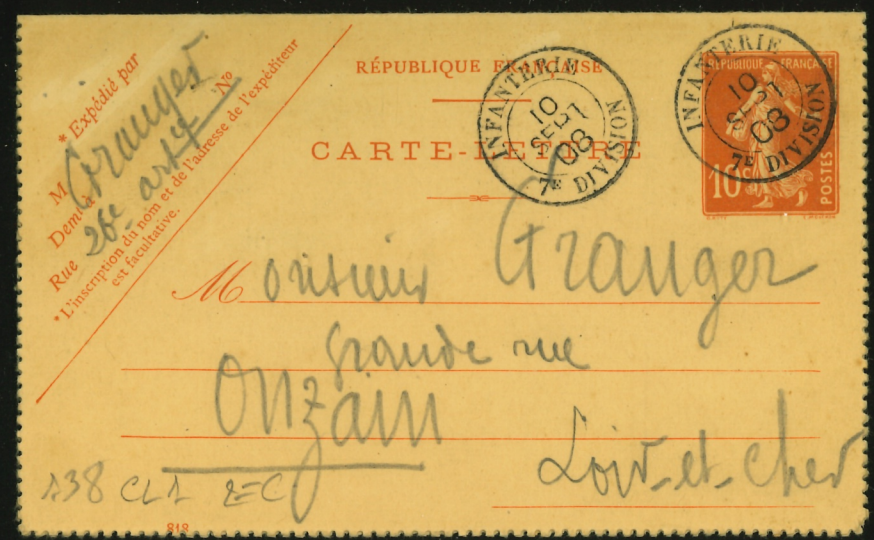 * Expédié par
M Granger
Demt à
26e artie
Rue Nº
* L'inscription du nom et de l'adresse de l'expéditeur
est facultative.
RÉPUBLIQUE FRANÇAISE
CARTE-LETTRE
INFANTERIE
10
SEPT
08
7E DIVISION
INFANTERIE
10
SEPT
08
7E DIVISION
RÉPUBLIQUE FRANÇAISE
10c
POSTES
Monsieur Granger
grande rue
Onzain
Loir-et-Cher
138 CL1
818